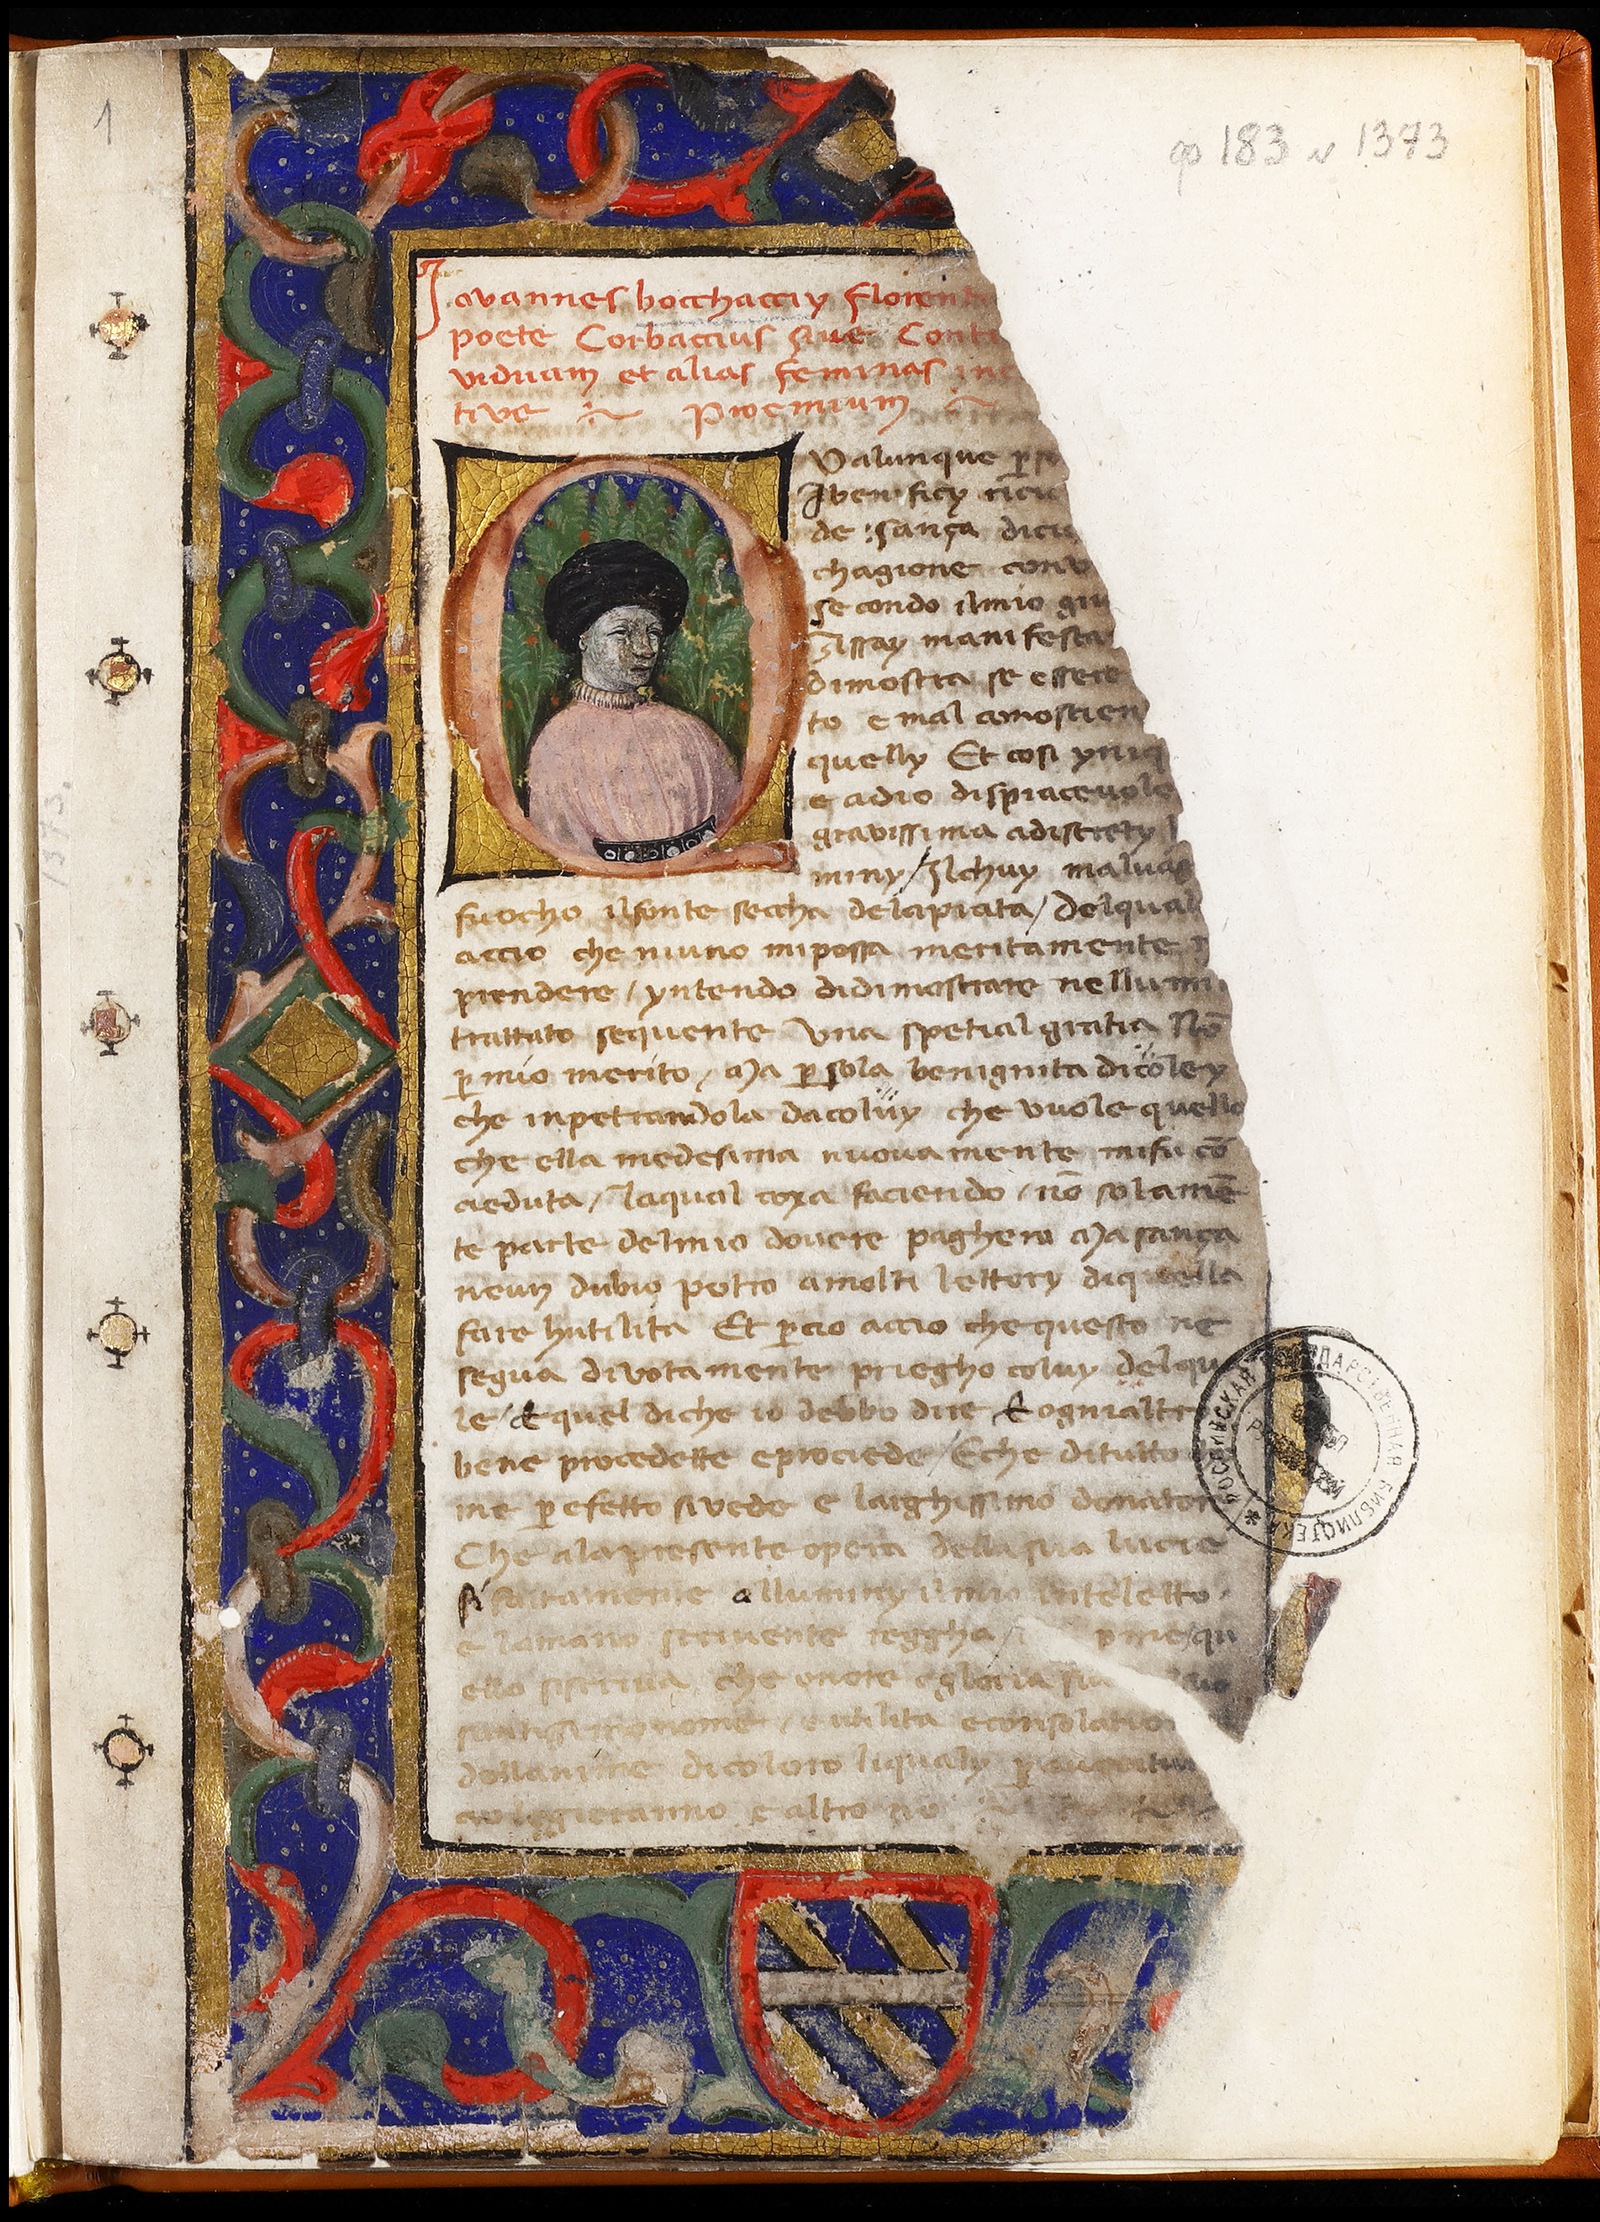 1
ф 183 № 1373
Iovannes bocchacciy florent
poete Corbaccius siue Cont
viduam et alias feminas in
tive Proemium
Valunque perso
I benificy rice
de sança dicie
chagione conv
se condo ilmio giu
Assay manifesta
dimostra se essere
to e mal conoscien
quelly Et cosi yniq
e adio dispiaceuole
gravissima adiscrety
miny / Ilchuy maluag
fuocho ilfonte seccha delapiata / Delqual
accio che niuno mipossa meritamente
prendere / yntendo didimostrare nellumi
trattato sequente Una spetial gratia Nō
p̱ mio merito / Ma p̱ sola benignita di coley
che inpetrandola dacoluy che vuole quello
che ella medesima nuouamente mifu cō
ceduta / laqual coxa faciendo / nō solamē
te parte delmio douere paghero Ma sança
neun dubio potro amolti lettory diquella
fare hutilita Et p̱cio accio chequesto ne
segua divotamente priegho coluy delqu
le / E quel diche io debbo dire E ognialtro
bene procedette eprociede / Eche ditutto
me p̱ efetto sivede e larghissimo donator
Che alapresente opera dellasua lucie
si fattamente alluminy ilmio intelletto
e lamano scriuente reggha / p̱ me / qu
ello siscriua che onore egloria
santissimo nome / e utilita econsolatio
dellanime dicoloro liqualy p̱
cio leggieranno e altro no
РОССИЙСКАЯ ГОСУДАРСТВЕННАЯ БИБЛИОТЕКА
1373